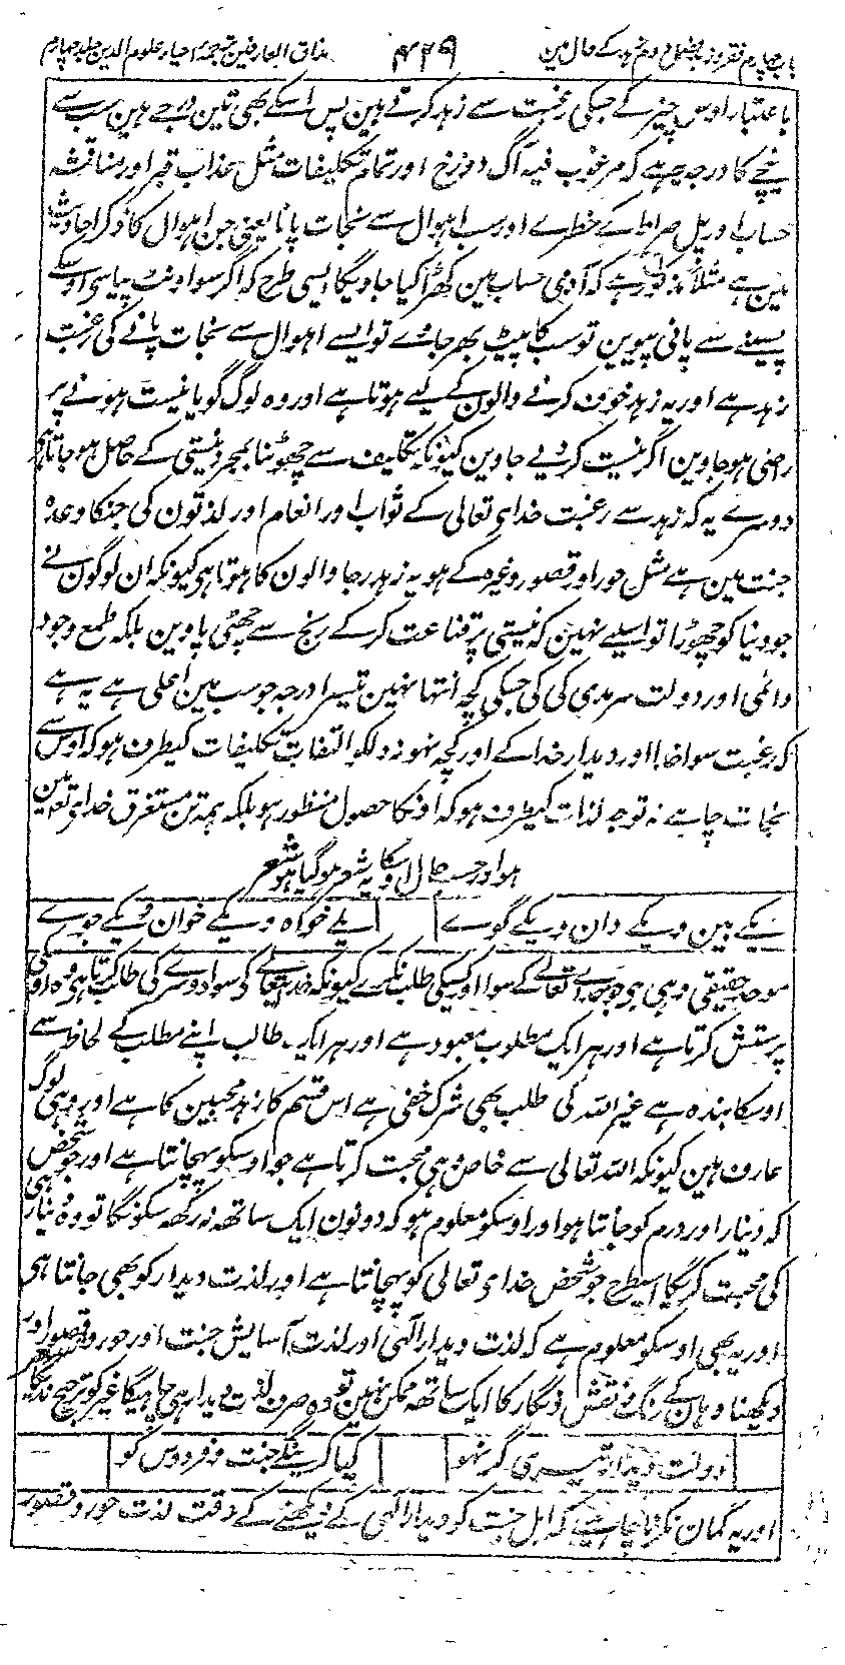 باب چہارم فقر و زہد فصل دوم زہد کے حال مین ۴۲۹ مذاق العارفین ترجمہ احیاء علوم الدین جلد چہارم
باعتبار اوس چیز کے جسکی رغبت سے زہد کرتے ہین پس اسکے بھی تین درجے ہین سب سے
نیچے کا درجہ یہ ہے کہ مرغوب فیہ آگ دوزخ اور تمام تکلیفات مثل عذاب قبر اور مناقشہ
حساب اور پل صراط کے خطرے اور سب اہوال سے نجات پانا یعنی جن اہوال کا ذکر احادیث
مین ہے مثلاً مذکور ہے کہ آدمی حساب مین کھڑا کیا جاویگا ایسی طرح کہ اگر سو اونٹ پیاسی اوسکے
پسینے سے پانی پیوین تو سب کا پیٹ بھر جاوے تو ایسے اہوال سے نجات پانے کی رغبت
زہد ہے اور یہ زہد خوف کرنے والون کے لیے ہوتا ہے اور وہ لوگ گویا نیست ہونے پر
راضی ہو جاوین اگر نیست کردیے جاوین کیونکہ تکلیف سے چھوٹنا بمجرد نیستی کے حاصل ہو جاتا ہی
دوسرے یہ کہ زہد سے رغبت خدای تعالی کے ثواب اور انعام اور لذتون کی جنکا وعدہ
جنت مین ہے مثل حور اور قصور وغیرہ کے ہو یہ زہد رجا والون کا ہوتا ہی کیونکہ ان لوگون نے
جو دنیا کو چھوڑا تو اسلیے نہین کہ نیستی پر قناعت کرکے رنج سے چھٹی پاوین بلکہ طمع وجود
دائمی اور دولت سرمدی کی کی جسکی کچھ انتہا نہین تیسرا درجہ جو سب مین اعلی ہے یہ ہے
کہ رغبت سوا خدا اور دیدار خدا کے اور کچھ نہو نہ دلکو التفات تکلیفات کیطرف ہو کہ اوس سے
نجات چاہے نہ توجہ لذات کیطرف ہو کہ اونکا حصول منظور ہو بلکہ ہمہ تن مستغرق خدای تعہ مین
ہو اور حسب حال اوسکا یہ شعر ہو گیا ہو شعر
یکے بین و یکے دان و یکے گوے یکے خواہ و یکے خوان و یکے جوے
موحد حقیقی وہی ہی جو خداے تعالے کے سوا اور کسیکی طلب نکرے کیونکہ خدا تعالے کی سوا دوسرے کی طالب کرتا ہی وہ اوسکی
پرستش کرتا ہے اور ہر ایک مطلوب معبود ہے اور ہر ایک طالب اپنے مطلب کے لحاظ سے
اوسکا بندہ ہے غیر اللہ کی طلب بھی شرک خفی ہے اس قسم کا زہد محبین کا ہے اور وہی لوگ
عارف ہین کیونکہ اللہ تعالی سے خاص وہی محبت کرتا ہے جو اوسکو پہچانتا ہے اور جو شخص
کہ دینار اور درم کو جانتا ہو اور اوسکو معلوم ہو کہ دونون ایک ساتھ نہ رکھہ سکونگا تو وہ دینار ہی
کی محبت کریگا اسیطرح جو شخص خدای تعالی کو پہچانتا ہے اور لذت دیدار کو بھی جانتا ہی
اور یہ بھی اوسکو معلوم ہے کہ لذت دیدار الٰہی اور لذت آسایش جنت اور حور و قصور اور
دیکھنا وہان کے رنگ و نقش و نگار کا ایک ساتھ ممکن نہین تو وہ صرف لذت دیدار ہی چاہیگا غیر کو ترجیح ندیگا شعر
دولت دیدار تیری گر نہو کیا کرینگے جنت و فردوس کو
اور یہ گمان نکرنا چاہیے کہ اہل جنت کو دیدار الٰہی کے دیکھنے کے وقت لذت حور و قصور